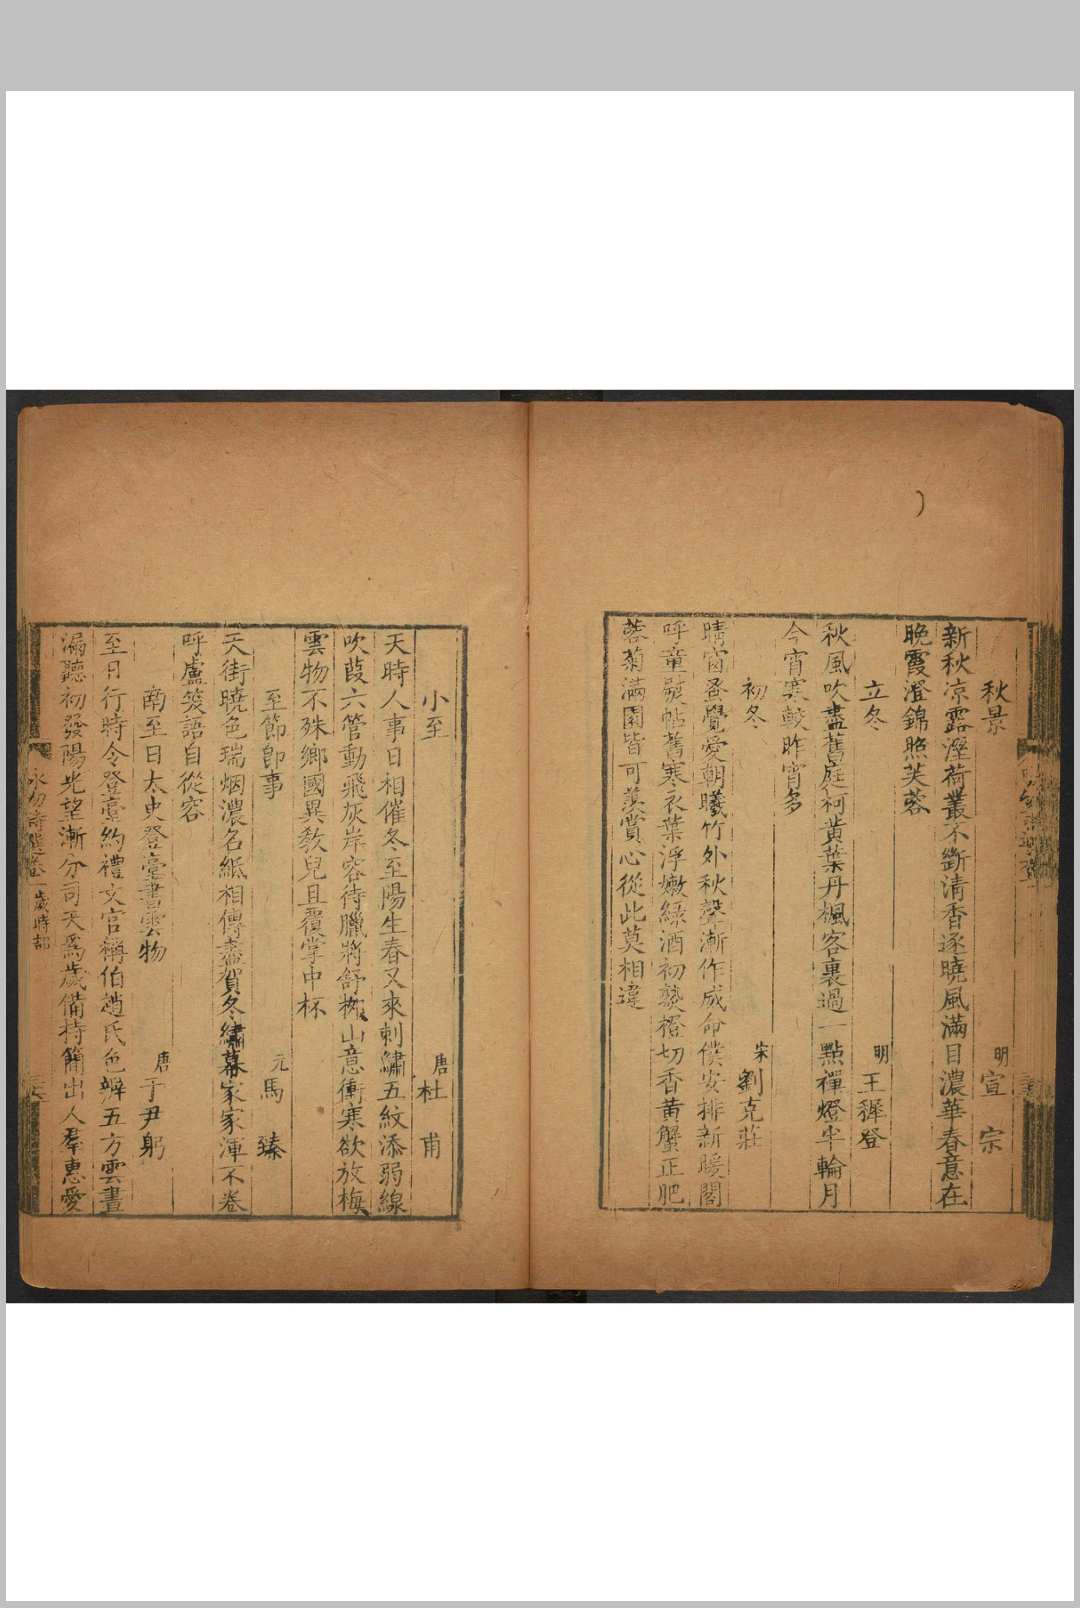 秋景
明宣宗
新秋凉露溼荷叢不斷清香逐曉風滿目濃華春意在
晚霞澄錦照芙蓉
立冬
明王穉登
秋風吹盡舊庭柯黃葉丹楓客裏過一點禪燈半輪月
今宵寒較昨宵多
初冬
宋劉克莊
晴窗蚤覺愛朝曦竹外秋聲漸作威命僕安排新暖閣
呼童熨帖舊寒衣葉浮嫩綠酒初熟橙切香黃蟹正肥
蓉菊滿園皆可羡賞心從此莫相違
小至
唐杜甫
天時人事日相催冬至陽生春又來刺繡五紋添弱線
吹葭六管動飛灰岸容待臘將舒柳山意衝寒欲放梅
雲物不殊鄉國異敎兒且覆掌中杯
至節卽事
元馬臻
天街曉色瑞烟濃名紙相傳盡賀冬繡幕家家渾不卷
呼盧笑語自從容
南至日太史登臺書雲物
唐于尹躬
至日行時令登臺約禮文官稱伯趙氏色辨五方雲晝
漏聽初發陽光望漸分司天爲歲備持簡出人羣惠愛
卷一歲時部